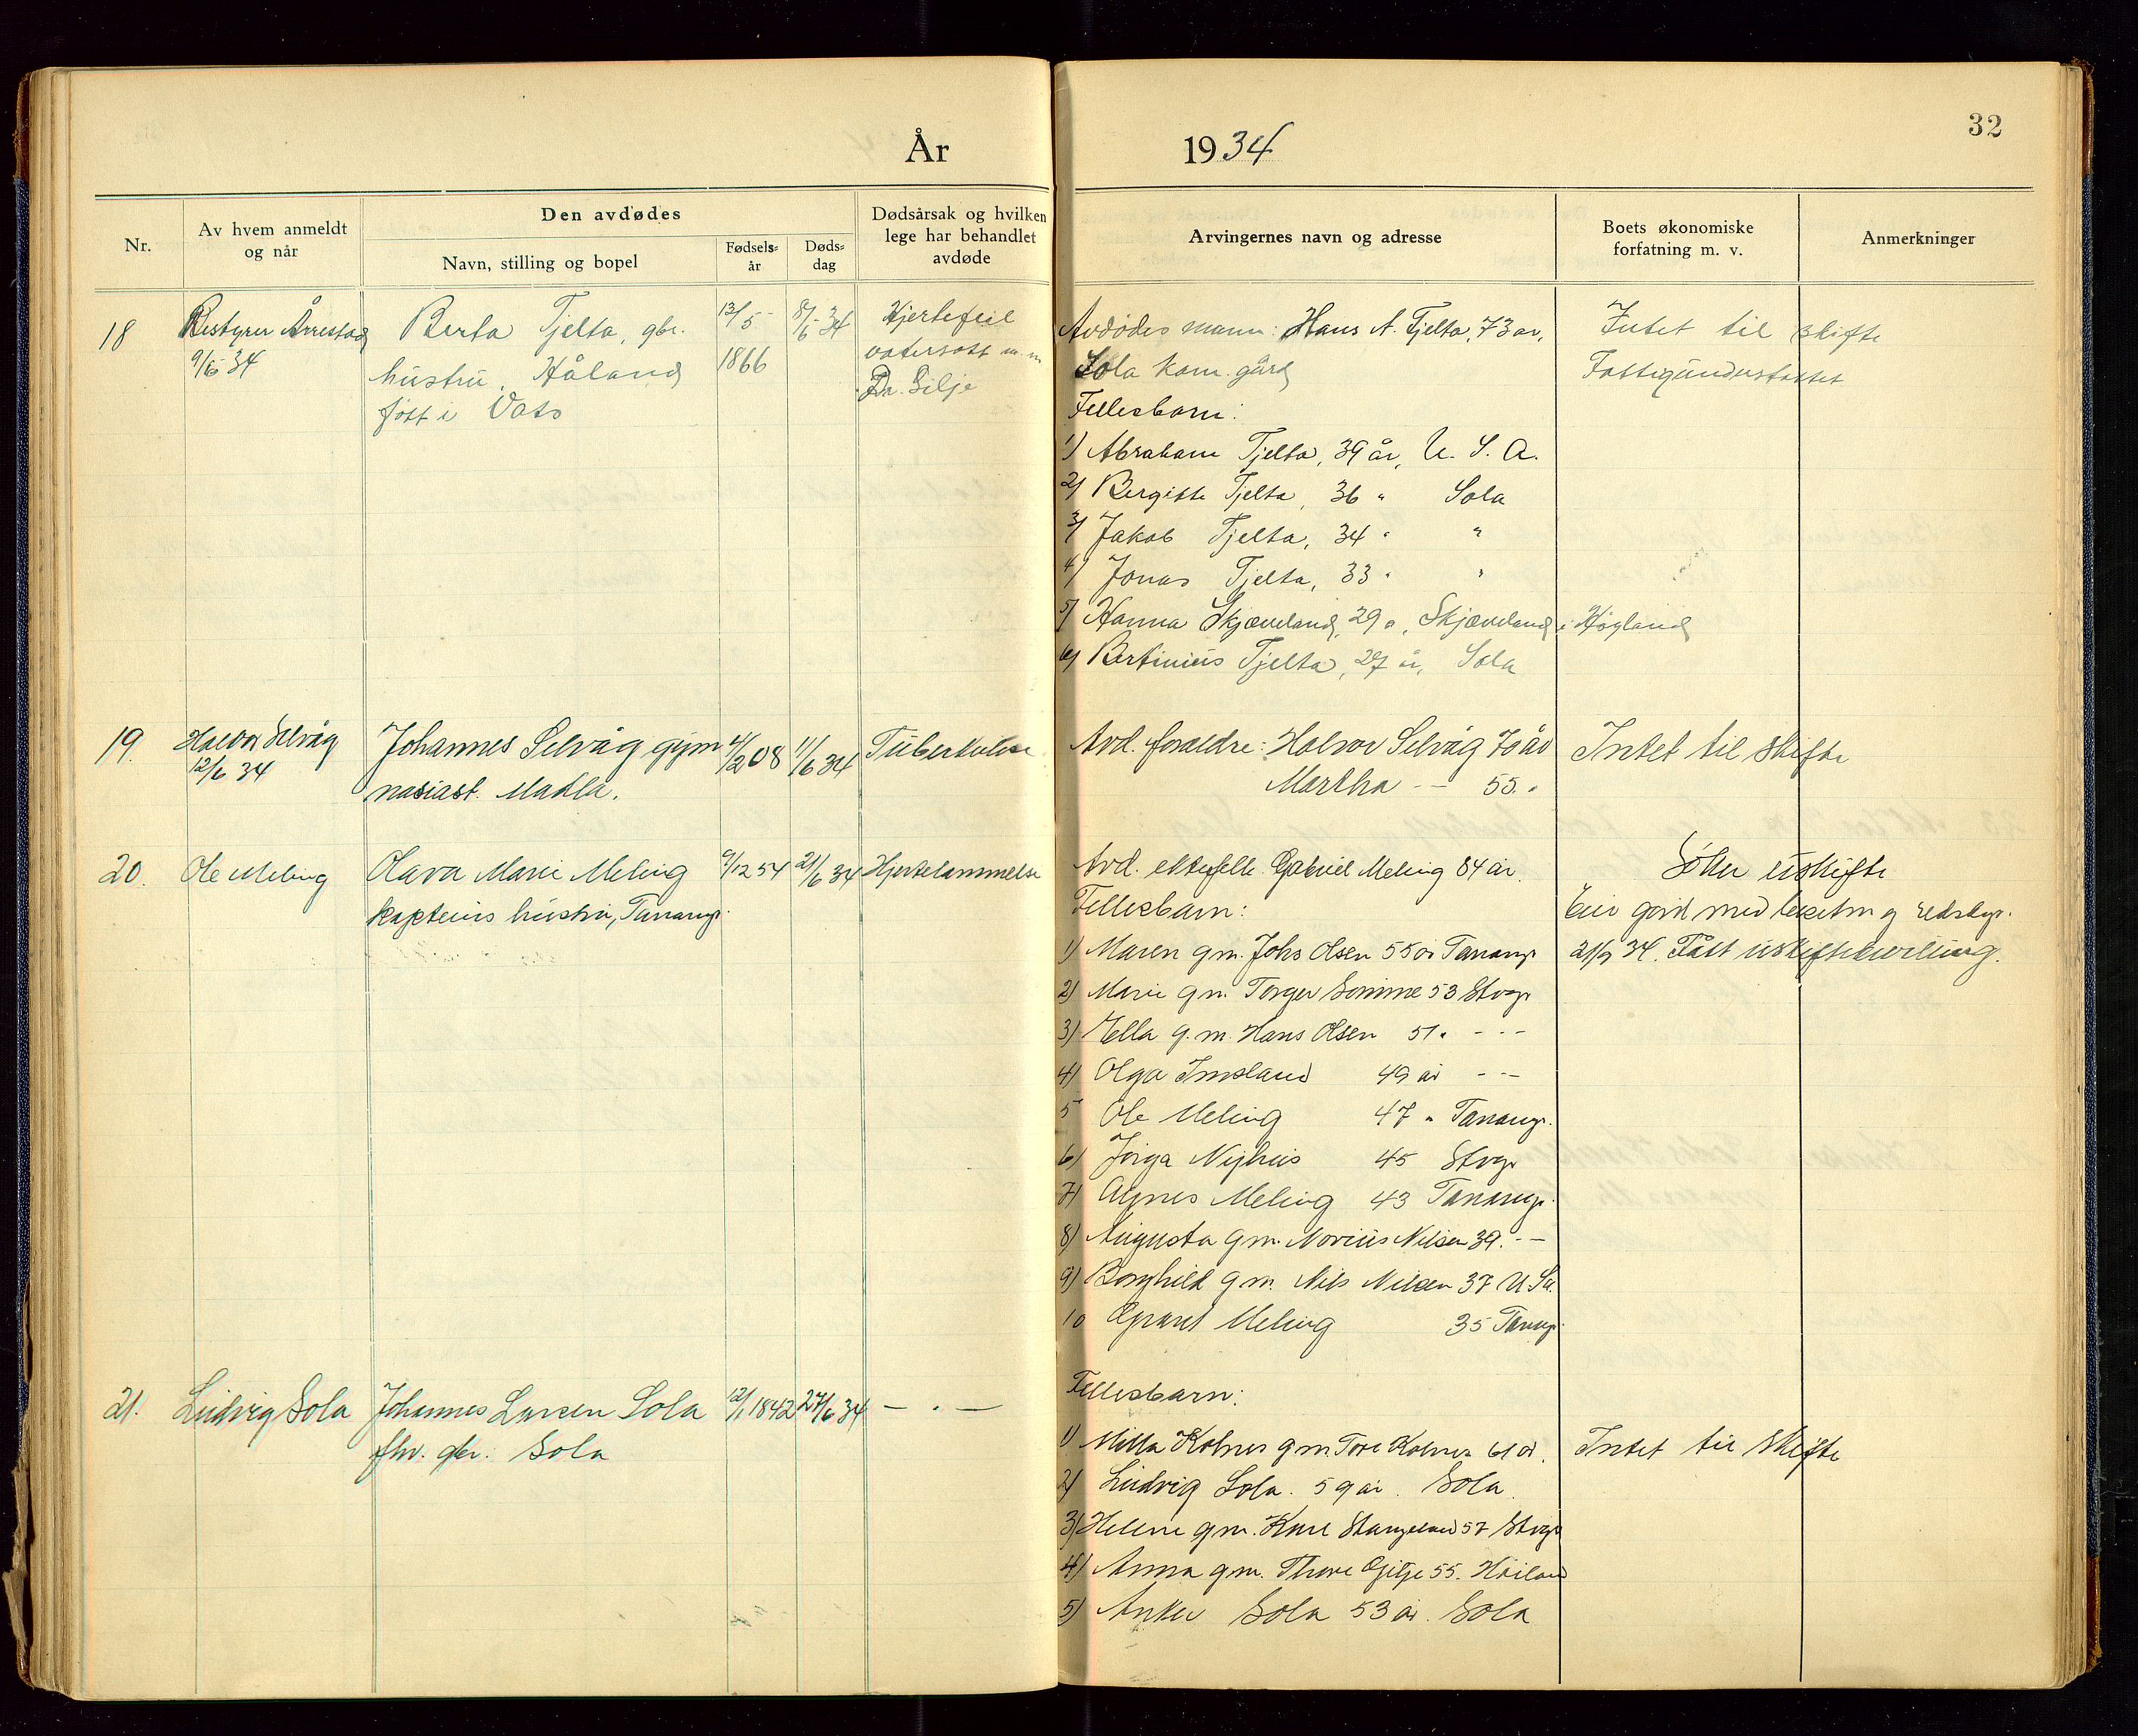 32
År 1934
Nr.
Av hvem anmeldt
og når
Den avdødes
Navn, stilling og bopel
Fødsels-
år
Døds-
dag
Dødsårsak og hvilken
lege har behandlet
avdøde
Arvingernes navn og adresse
Boets økonomiske
forfatning m. v.
Anmerkninger
18
Bestyrer Årrestad
9/6 34
Berta Tjelta, gbr.
hustru, Håland
født i Vats
13/5
1866
8/6 34
Hjertefeil
vatersott m. m
Dr. Silje
Avdødes mann: Hans A. Tjelta, 73 år,
Sola kom. gård
Fellesbarn:
1) Abraham Tjelta, 39 år, U. S. A.
2) Bergitte Tjelta, 36 " Sola
3) Jakob Tjelta, 34 " "
4) Jonas Tjelta, 33 " "
5) Hanna Skjæveland, 29 ", Skjæveland i Høyland
6) Bertinius Tjelta, 27 år, Sola
Intet til skifte
Fattigunderstøttet
19.
Halvor Selvåg
12/6 34
Johannes Selvåg gym
nasiast. Madla.
4/2 08
11/6 34
Tuberkulose
Avd. foreldre: Halvor Selvåg 70 år
Martha - - 55 "
Intet til skifte
20.
Ole Meling
Olava Marie Meling
kapteins hustru, Tananger.
9/12 54
21/6 34
Hjertelammelse
Avd. ektefelle Gabriel Meling 84 år.
Fellesbarn:
1) Maren gm. Johs Olsen 55 år Tanangr
2) Marie gm. Torger Sømme 53 Stvgr
3) Ella g. m. Hans Olsen 51 " - - -
4) Olga Imsland 49 år - - -
5 Ole Meling 47 " Tanangr.
6) Jørga Nyhus 45 Stvgr
7) Agnes Meling 43 Tanangr.
8) Augusta gm. Morius Nilsen 39. - -
9) Borghild gm. Nils Nilsen 37 U. Sa.
10 Meling 35 Tanngr.
Sitter i uskifte
Eier gård med besetn og redskap.
21/9 34. Fått uskiftebevilling.
21.
Ludvig Sola
Johannes Larsen Sola
fhv. gbr. Sola
12/1 1842
27/6 34
— . —
Fellesbarn:
1) Milla Kolnes gm. Tore Kolnes 61 år.
2) Ludvig Sola. 59 år. Sola.
3) Helene gm. Karl Stangeland 57 Stvgr
4) Anna gm. Thore Gjilje 55. Høiland
5) Anker Sola 53 år. Sola
Intet til skifte